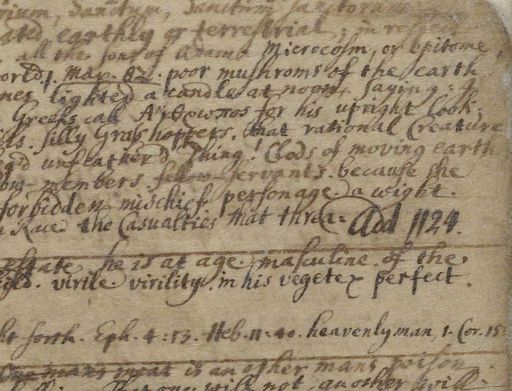 Sanctum, Sanctum Sanctorum
ated earthly or terrestrial, in re
all the sons of Adam Microcosm, or epitome,
orld. Max. 82. poor mushroms of the earth
nes lighted a candle at noon, saying: I
Greeks call for his upright look.
ls. silly Grashoppers. that rational Creature
g'd unfeather'd thing! Clods of moving earth
om. members. fellow servants. because she
forbidden mischief. personage. a wight.
Race the Casualties that threa- Add 1124.
estate he is at age. masculine of the
virile virility. in his vegete perfect.
ht forth. Eph. 4. 13. Heb. 11. 40. heavenly man. 1. Cor. 15.
One mans meat is another mans poison.
will not another will